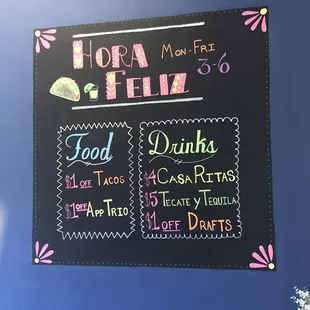 HORA FELIZ
MON-FRI
3-6
Food
$1 OFF TACOS
$1 OFF APP TRIO
Drinks
$4 CASA RITAS
$5 TECATE Y TEQUILA
$1 OFF DRAFTS